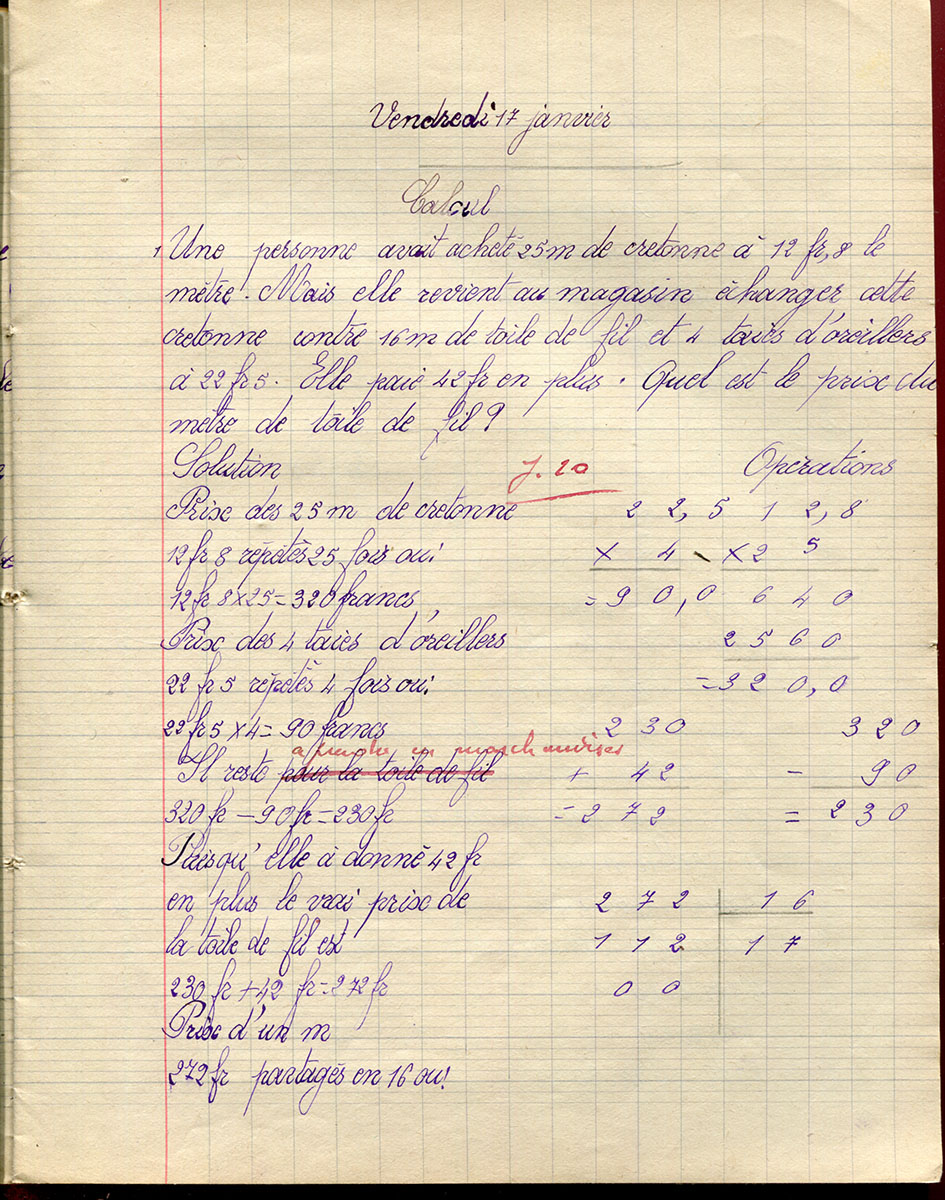 Vendredi 17 janvier
Calcul
1 Une personne avait acheté 25m de cretonne à 12 fr,8 le
mètre. Mais elle revient au magasin échanger cette
cretonne contre 16m de toile de fil et 4 taies d'oreillers
à 22 fr 5. Elle paie 42 fr en plus. Quel est le prix du
mètre de toile de fil ?
Solution
Opérations
Prix des 25 m de cretonne
22,5 12,8
12 fr 8 répétés 25 fois ou:
× 4 ×25
12 fr 8×25=320 francs
=90,0 640
Prix des 4 taies d'oreillers
2560
22 fr 5 répétés 4 fois ou:
=320,0
22 fr 5 ×4= 90 francs
230 320
en marchandises
Il reste pour la toile de fil
+ 42 - 90
320 fr - 90 fr = 230 fr
=272 = 230
Puisqu'elle à donné 42 fr
en plus le vrai prix de
272 16
la toile de fil est
112 17
230 fr + 42 fr = 272 fr
00
Prix d'un m
272 fr partagés en 16 ou: